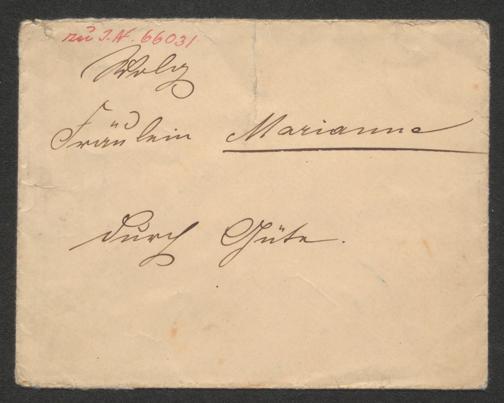 zu I.N. 66031
Wolg
Fräulein Marianne
durch Güte.